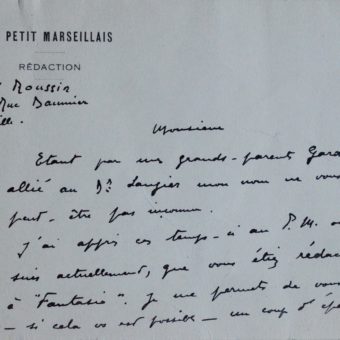 PETIT MARSEILLAIS
RÉDACTION
Moussin
Rue Baumier
Monsieur
Etant par mes grands-parents Gard
allié au Dr Laugier mon nom ne vous
peut-être pas inconnu.
J'ai appris ces temps-ci au P.M. où
suis actuellement, que vous étiez rédac
à "Fantasio". Je me permets de vous
- si cela vs est possible - un coup d'épa